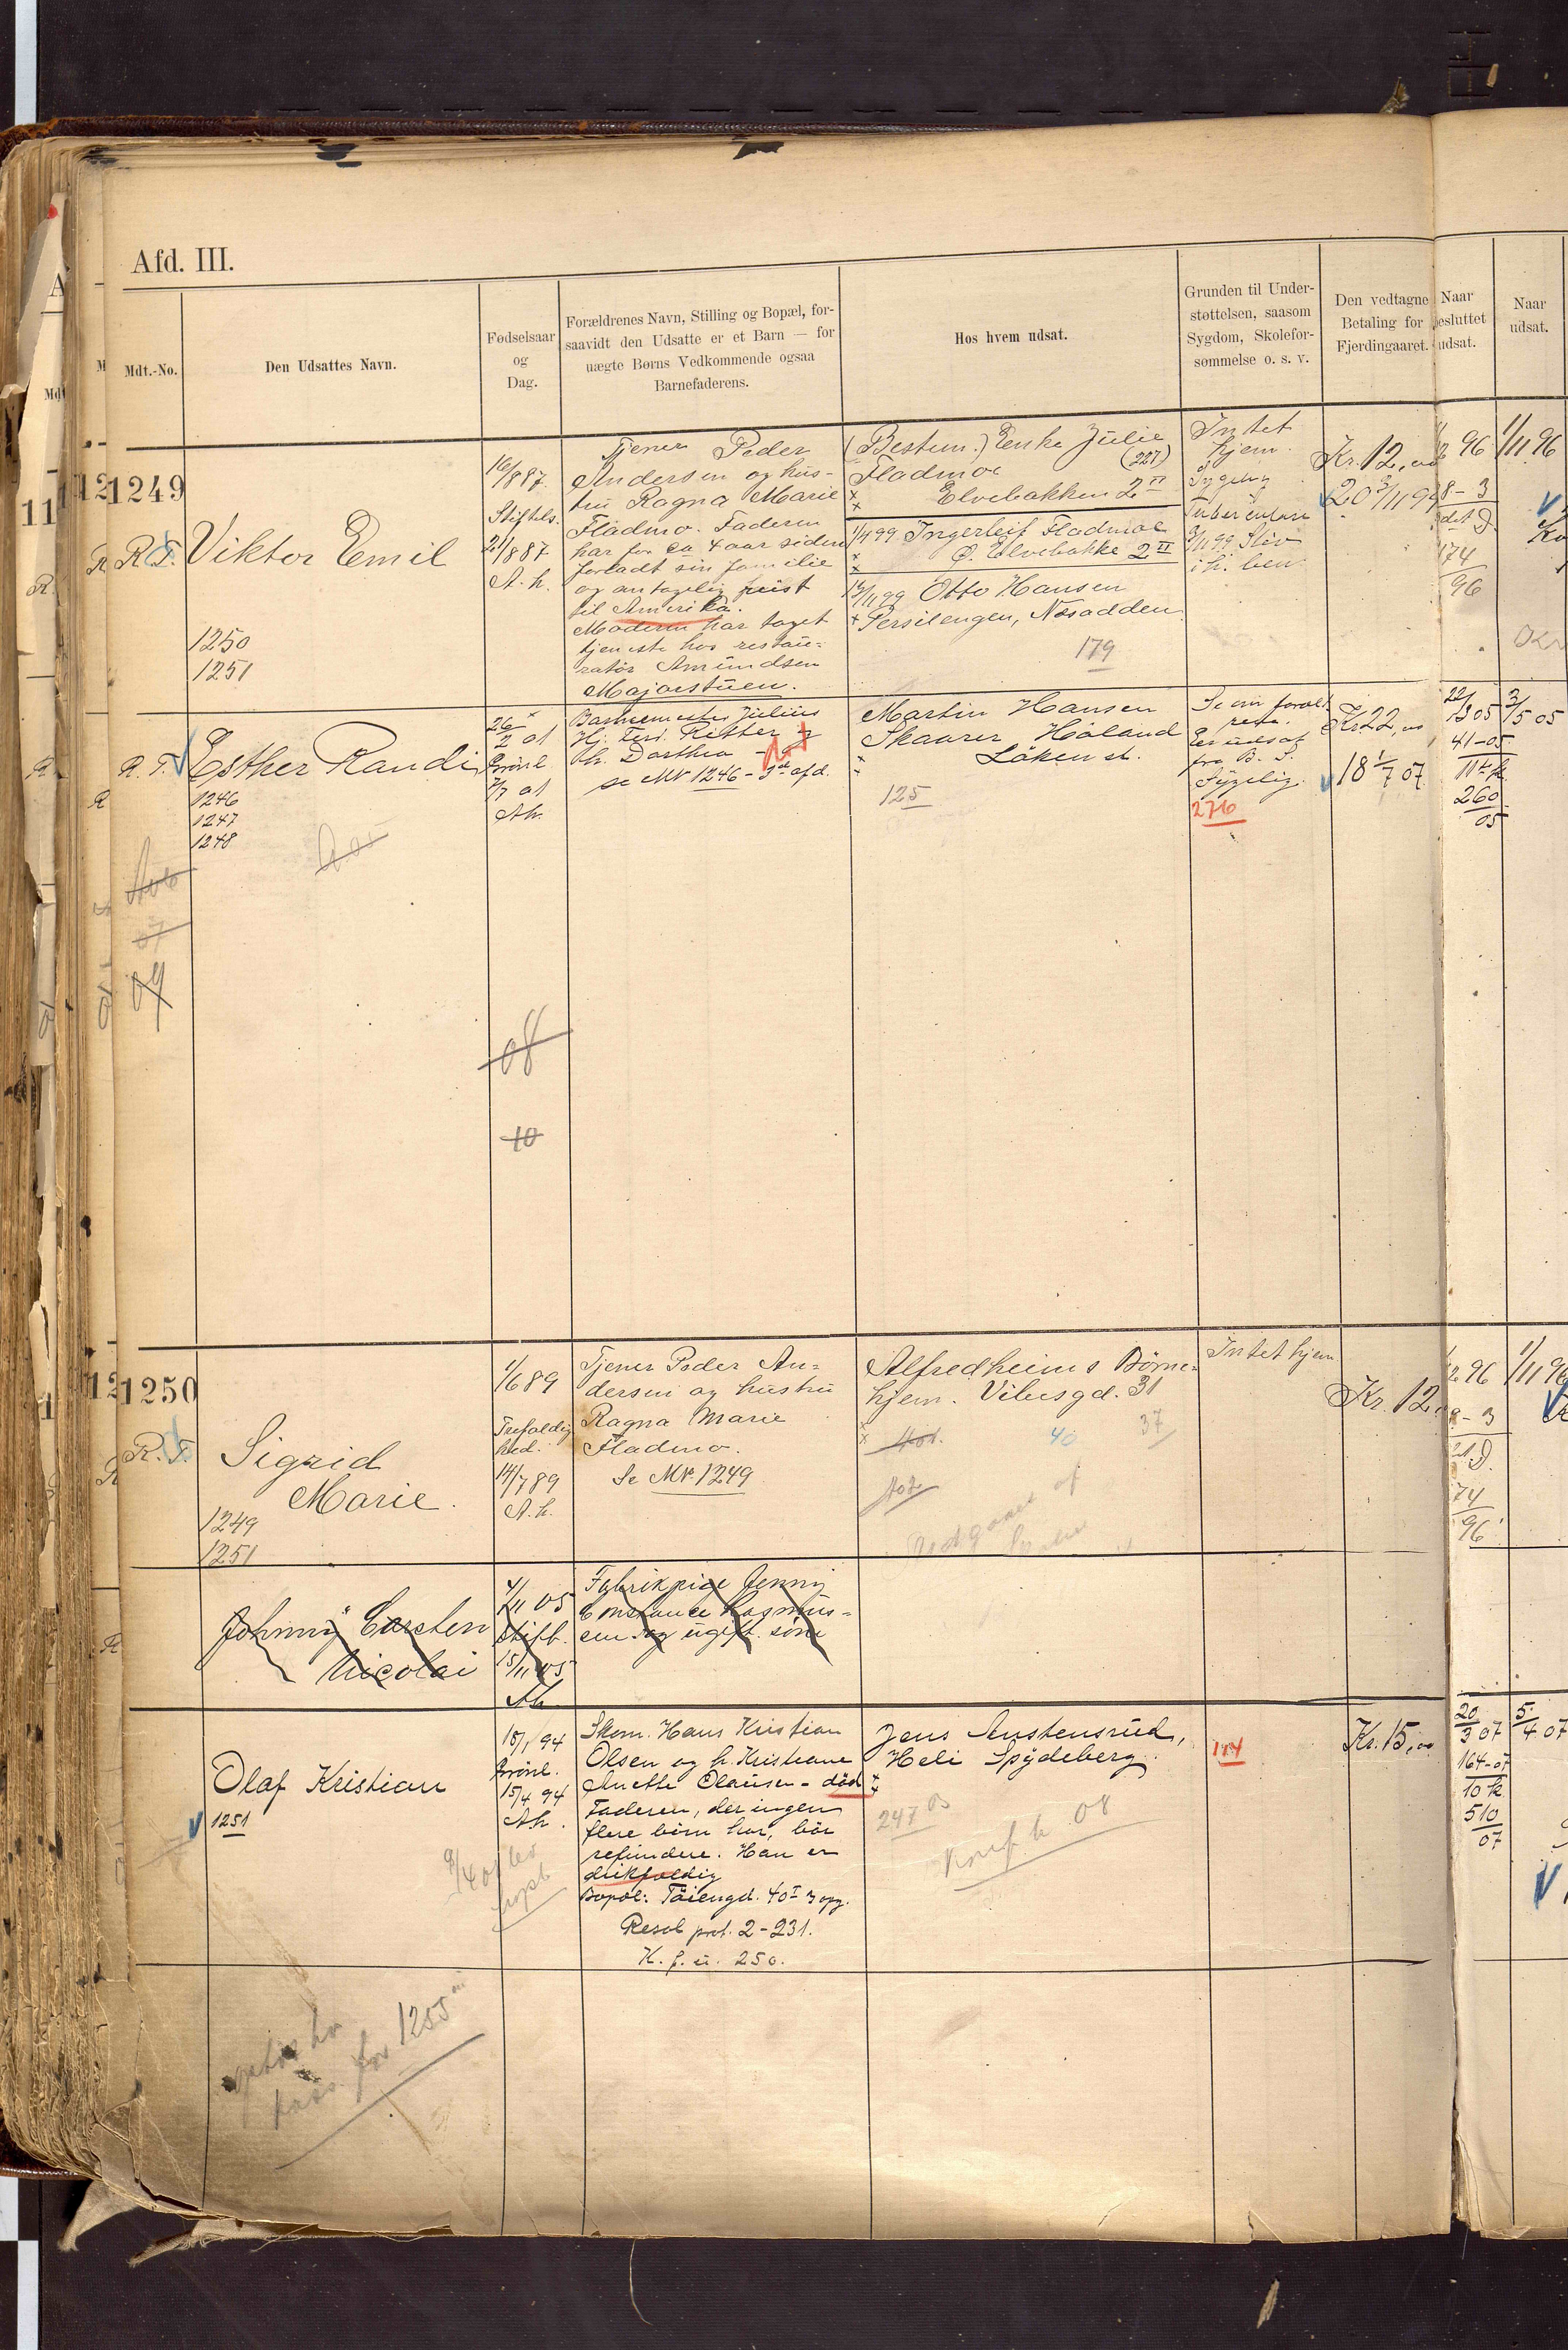 Afd. III.
Mdt.-No.
Den Udsattes Navn.
Fødselsaar
og
Dag.
Forældrenes Navn, Stilling og Bopæl, for-
saavidt den Udsatte er et Barn — for
uægte Børns Vedkommende ogsaa
Barnefaderens.
Hos hvem udsat.
Grunden til Under-
støttelsen, saasom
Sygdom, Skolefor-
sømmelse o. s. v.
Den vedtagne
Betaling for
Fjerdingaaret.
Naar
besluttet
udsat.
Naar
udsat.
1249
R. F.
Viktor Emil
1250
1251
16/8 87
Stiftels.
21/8 87
A. h.
Tjener Peder
Andersen og hus-
tru Ragna Marie
Fladmo. Faderen
har for ca 4 aar siden
forladt sin familie
og antagelig reist
til Amerika.
Moderen har taget
tjeneste hos restau-
ratør Amundsen
Majorstuen.
(Bestem.) Enke Julie
Fladmoe (227)
Elvebakken 2 II
1/4 99 Ingerleif Fladmoe
Ø. Elvebakke 2 II
Otto Hansen
Persilengen, Næsodden
179
Intet
hjem.
Sygelig
Tuberculøse
Stiv
i h. ben.
Kr. 12,00
20 3/11 99
96
1/11 96
8-3
174
96
R. F.
Esther Randi
1246
1247
1248
26/2 01
Grönl.
7/7 01
Ah.
Banemester Julius
H. Ferd. Ritter og
h. Dorthea
se Mt 1246 - 3die afd.
Martin Hansen
Skaarer Höland
Löken st.
125
Se om foræl-
rene.
Er udsat
fra B. S.
Sygelig.
276
Kr 22,00
18 1/7 07
22/3 05
3/5 05
41-05
11te k
260
05
07
09
08
10
1250
R. F.
Sigrid
Marie.
1249
1251
1/6 89
Trefoldig
hed.
14/7 89
A. h.
Tjener Peder An-
dersen og hustru
Ragna Marie
Fladmo.
Se Mt. 1249
Alfredheims Börne-
hjem. Vibesgd. 31
40
37
Intet hjem
Kr. 12,00
96
1/11 96
74
96
Johnny Carsten
Nicolai
4/11 05
Stift.
15/11 05
Ah
Fabrikpige Jenny
Constance Rasmus-
sen og ugift. sön
Olaf Kristian
1251
15/1 94
Grönl.
15/4 94
Ah.
Skom. Hans Kristian
Olsen og h. Kristiane
Anette Olausen - död
Faderen, der ingen
flere börn har, bör
refundere. Han er
drikfældig
Bopæl: Töiengd. 40 I 3 opg.
Resol prot. 2-231.
K. f. u. 250.
Jens Austensrud,
Heli Spydeberg.
247 03
konf. h. 08
114
Kr. 15,00
20/3 07
5/4 07
164-07
10 k
510
07
for 1255